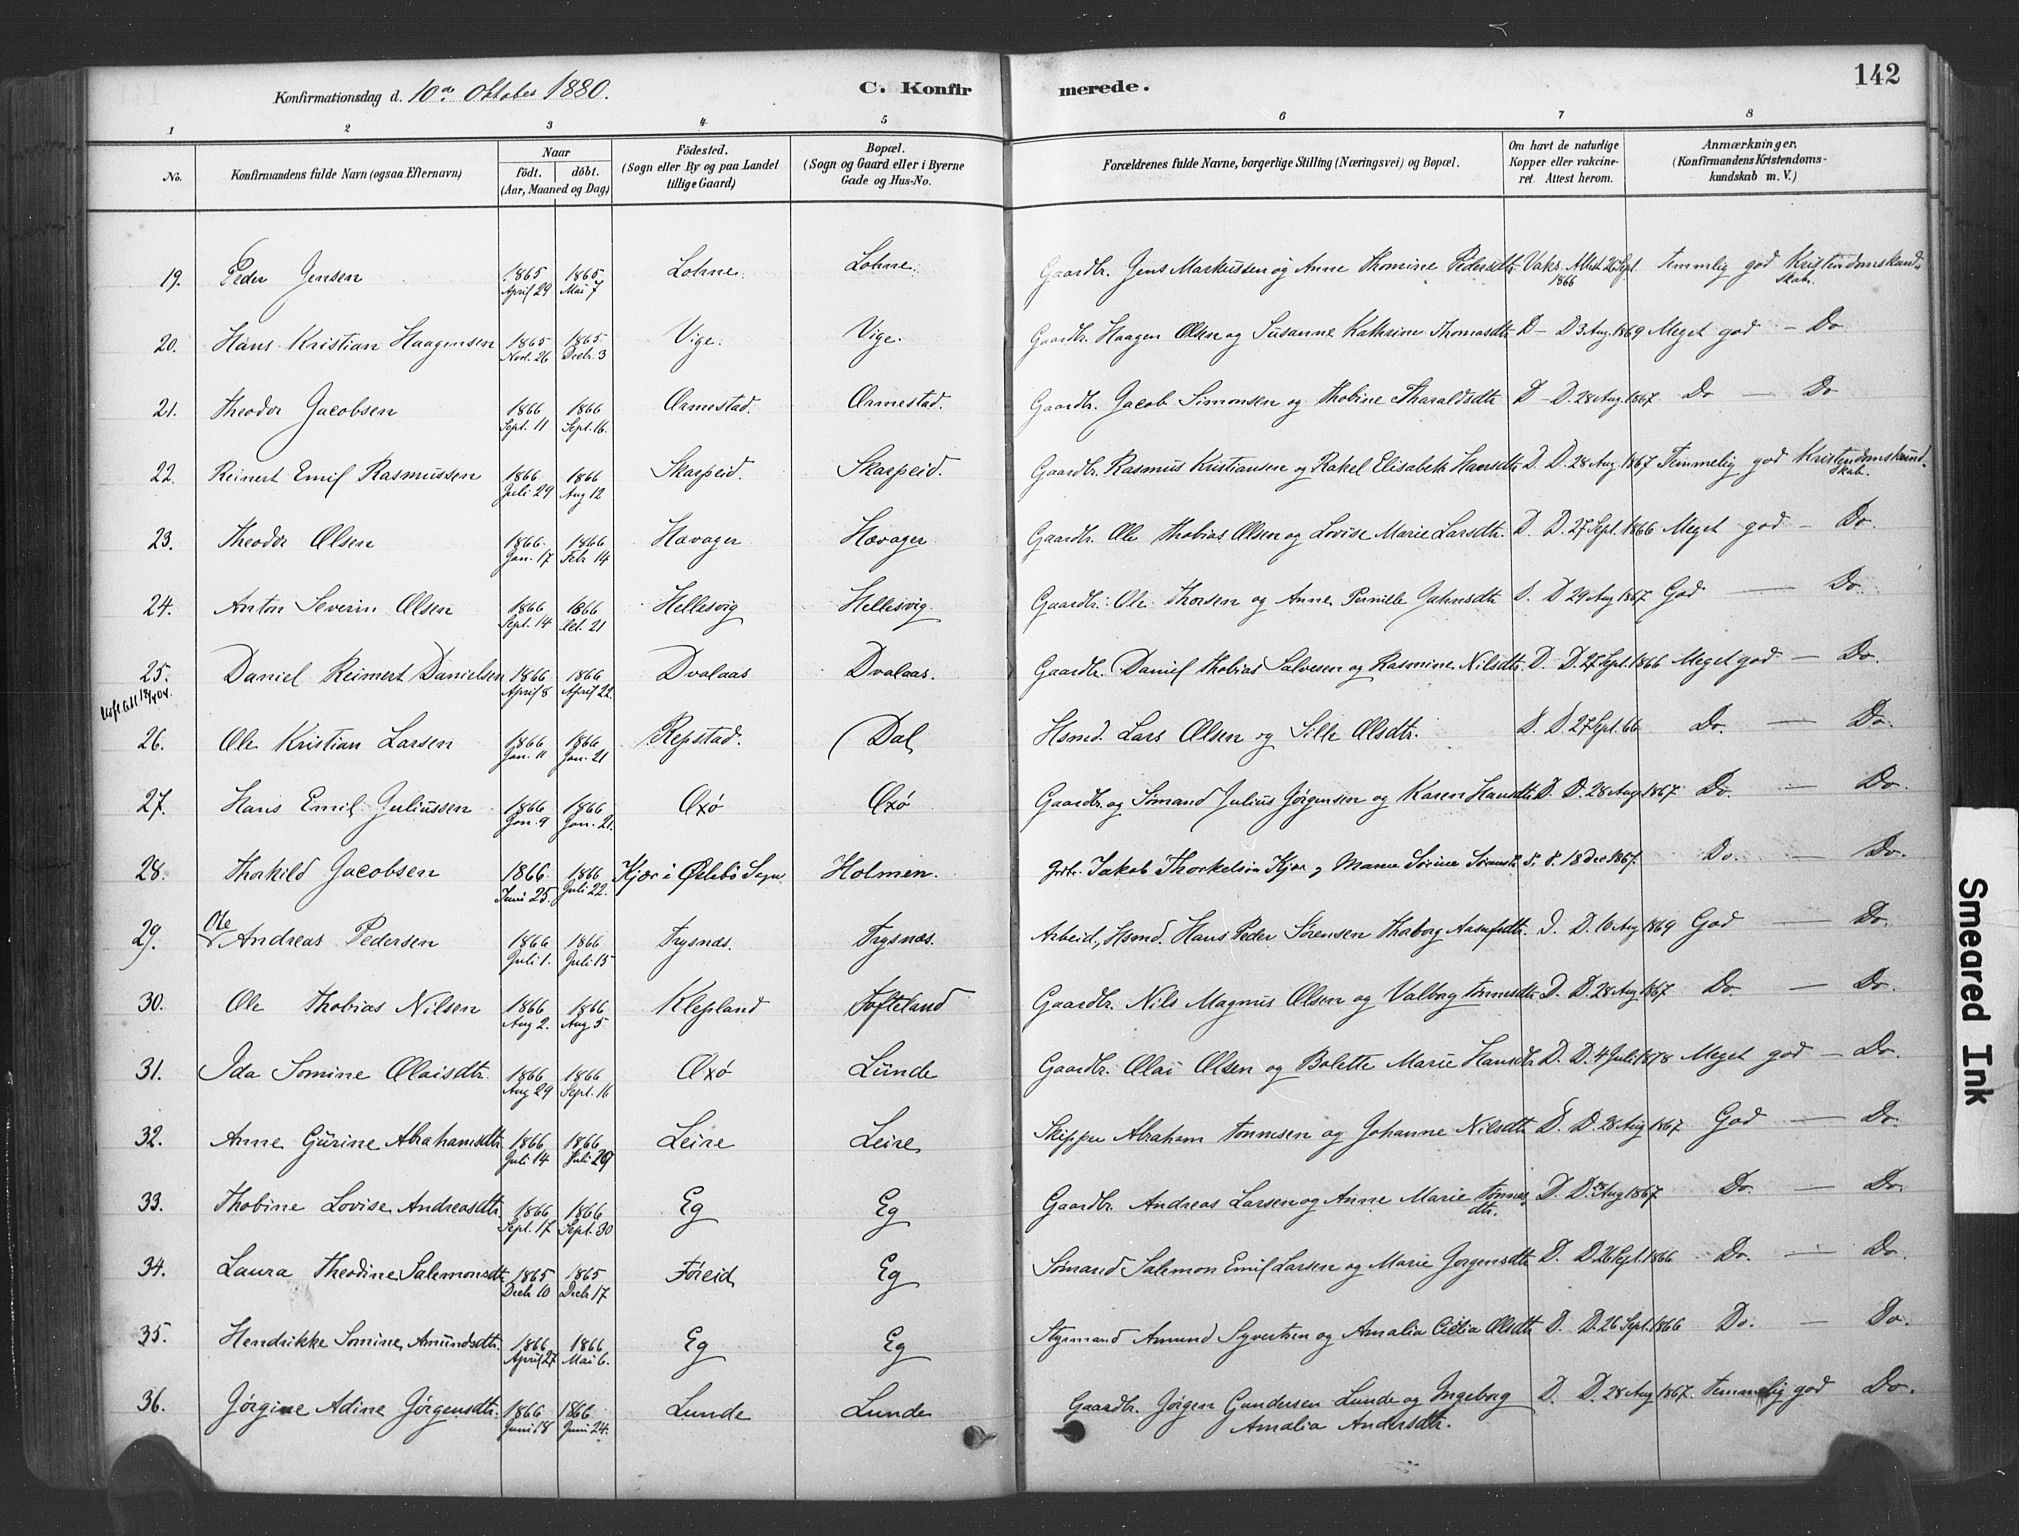 142
Konfirmationsdag d. 10de Oktober 1880. C. Konfirmerede.
1 2 3 4 5 6 7 8
No. Konfirmandens fulde Navn (ogsaa Efternavn) Naar födt. döbt. (Aar, Maaned og Dag) Födested. (Sogn eller By og paa Landet tillige Gaard) Bopæl. (Sogn og Gaard eller i Byerne Gade og Hus-No. Forældrenes fulde Navne, borgerlige Stilling (Næringsvei) og Bopæl. Om havt de naturlige Kopper eller vakcineret. Attest herom. Anmærkninger. (Konfirmandens Kristendomskundskab m. V.)
19. Peder Jensen 1865 April 29 1865 Mai 7 Lohne. Lohne. Gaardbr. Jens Markussen og Anne Thomine Pedersdtr. Vaks. Attest 26 Sept. 1866 Temmlig god Kristendomskundskab.
20. Hans Kristian Haagensen 1865 Novb. 26 1865 Decbr. 3 Vige. Vige. Gaardbr. Haagen Olsen og Susanne Kathrine Thomasdtr. D – D 3 Aug. 1869 Meget god – Do
21. Theodor Jacobsen 1866 Sept. 11 1866 Sept. 16. Ormestad. Ormestad. Gaardbr. Jacob Simonsen og Thobine Tharaldsdtr D – D. 28 Aug. 1867 Do — Do
22. Reinert Emil Rasmussen 1866 Juli 29 1866 Aug 12 Skarpeid. Skarpeid. Gaardbr. Rasmus Kristiansen og Rakel Elisabeth Hansdtr D. D. 28 Aug. 1867 Temmelig god Kristendomskundskab.
23. Theodor Olsen 1866 Jan. 17 1866 Febr 14 Hævager Hævager Gaardbr. Ole Thobias Olsen og Lovise Marie Larsdtr. D. D. 27 Sept. 1866 Meget god – Do.
24. Anton Severin Olsen 1866 Sept. 14 1866 Oct. 21 Hellesvig Hellesvig Gaardbr. Ole Thorsen og Anne Pernille Jahnsdtr D. D 29 Aug 1867 God — Do.
25. Daniel Reimert Danielsen 1866 April 8 1866 April 22. Dvalaas Dvalaas. Gaardbr. Daniel Thobias Salvesen og Rasmine Nilsdtr. D. D. 27 Sept. 1866 Meget god — Do.
26. Ole Kristian Larsen 1866 Jan. 11 1866 Jan. 21 Repstad. Dal Hsmd. Lars Olsen og Sille Olsdtr. D. D. 27 Sept. 66 Do. — Do.
27. Hans Emil Juliussen 1866 Jan. 9 1866 Jan. 21. Oxö Oxö Gaardbr. og Sömand Julius Jörgensen og Karen Hansdtr D. D. 28 Aug 1867 Do. — Do.
28. Thorkild Jacobsen 1866 Juni 25. 1866 Juli 22. Kjær i Øslebö Sogn Holmen. Grdbr. Jakob Thorkelsön Kjær og Maren Sörine Sörensdtr. D. D. 18 Dec 1867. Do. — Do.
29. Ole Andreas Pedersen 1866 Juli 1. 1866 Juli 15 Trysnæs. Trysnæs. Arbeid., Hsmd. Hans Peder Sörensen Thoborg Aasufsdtr. D. D. 10 Aug 1869 God — Do.
30. Ole Thobias Nilsen 1866 Aug 2. 1866 Aug 5 Klepland Tofteland Gaardbr. Nils Magnus Olsen og Valborg Tönnesdtr D. D. 28 Aug 1867 Do. — Do.
31. Ida Somine Olaisdtr. 1866 Aug 29 1866 Sept. 16 Oxö Lunde Gaardbr. Olai Olsen og Bolette Marie Hansdtr D. D. 4 Juli 1878 Meget god – Do.
32. Anne Gurine Abrahamsdtr. 1866 Juli 14 1866 Juli 29 Leire Leire. Skipper Abraham Tönnesen og Johanne Nilsdtr D. D. 28 Aug 1867 God — Do.
33. Thobine Lovise Andreasdtr. 1866 Sept. 17 1866 Sept. 30 Eg Eg Gaardbr. Andreas Larsen og Anne Marie Tönnesdtr. D. D. 28 Aug 1867 Do. — Do.
34. Laura Theodine Salemonsdtr. 1865 Decb. 10 1865 Decb. 17 Föreid Eg Sömand Salemon Emil Larsen og Marie Jörgensdtr. D. D. 26 Sept. 1866 Do. — Do.
35. Hendrikke Somine Amundsdtr. 1866 April 27 1866 Mai 6. Eg Eg Styrmand Amund Syvertsen og Amalia Cicilia Olsdtr. D. D. 26 Sept. 1866 Do. — Do.
36. Jörgine Adine Jörgensdtr. 1866 Juni 18 1866 Juni 24. Lunde Lunde Gaardbr. Jörgen Gundersen Lunde og Ingeborg Amalia Andersdtr. D. D. 28 Aug 1867. Temmelig god Do.
Smeared Ink